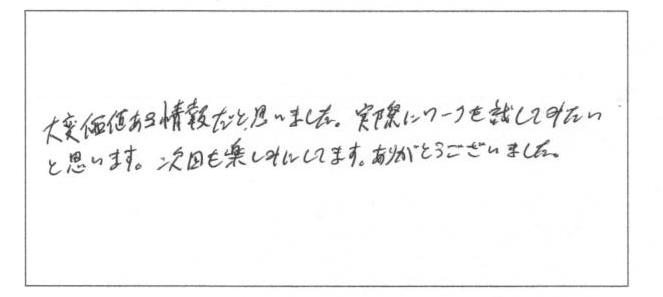 大変価値ある情報だと思いました。実際にワークを試してみたい
と思います。次回も楽しみにしてます。ありがとうございました。